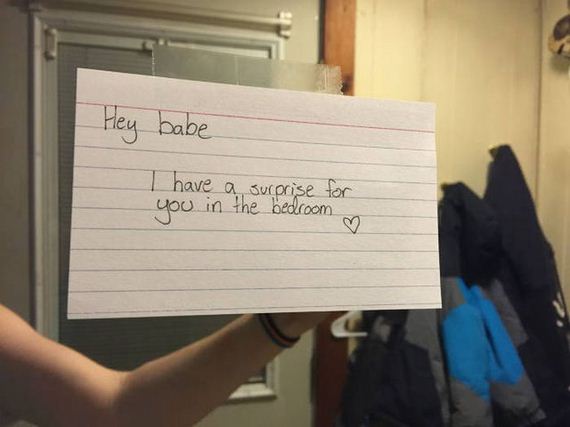 Hey babe
I have a surprise for
you in the bedroom ♡